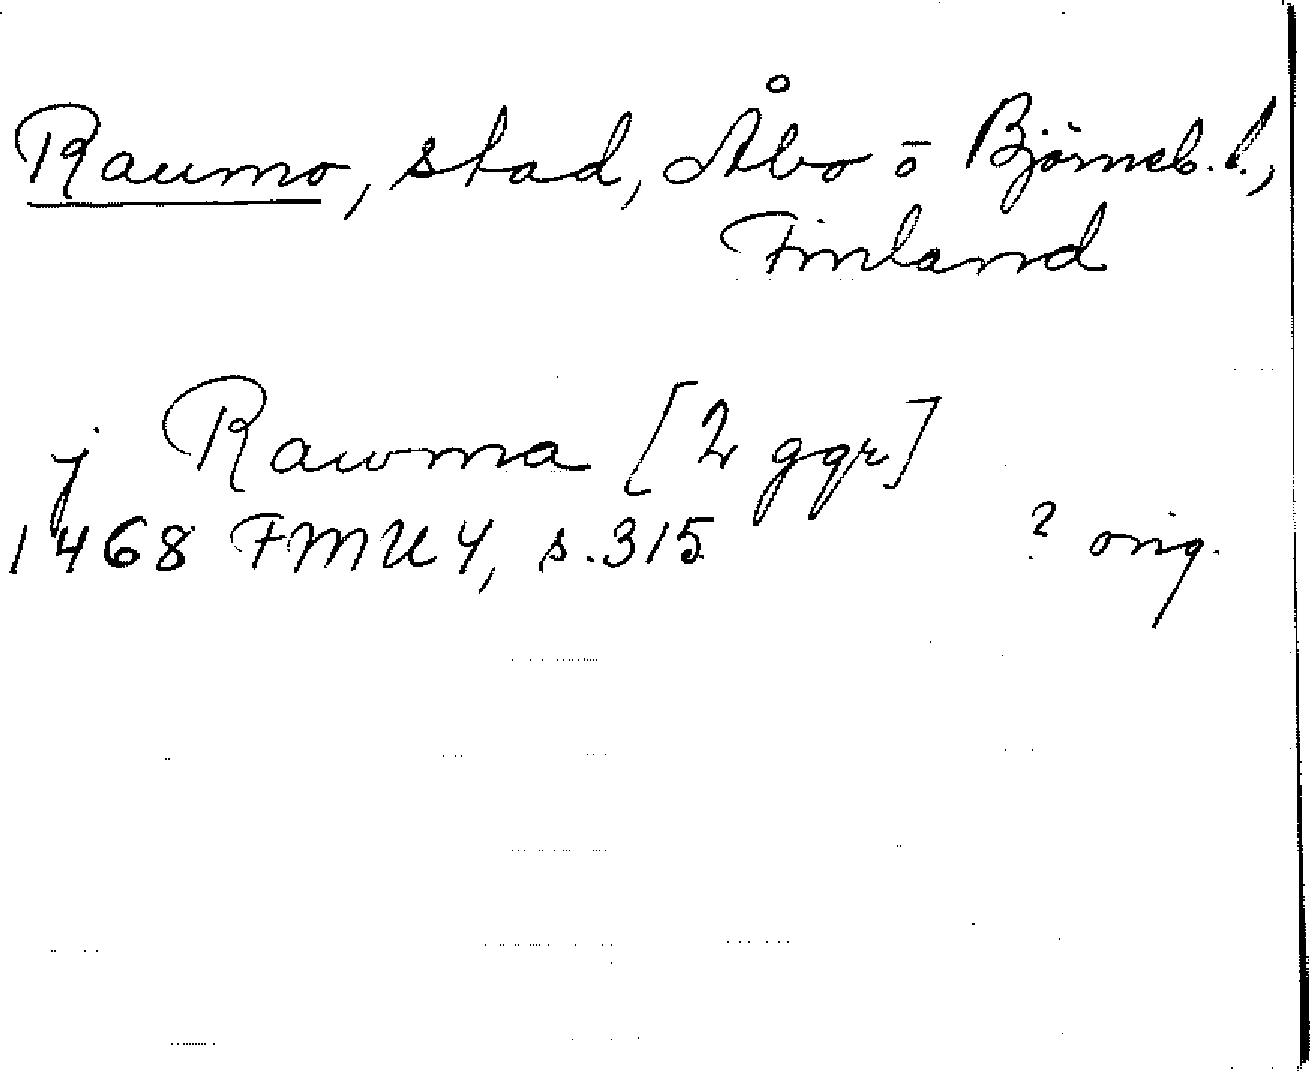 Raumo, stad, Åbo o Björneb. l.,
Finland
j Rawma [2 ggr]
1468 FMU 4, s. 315 ? orig.